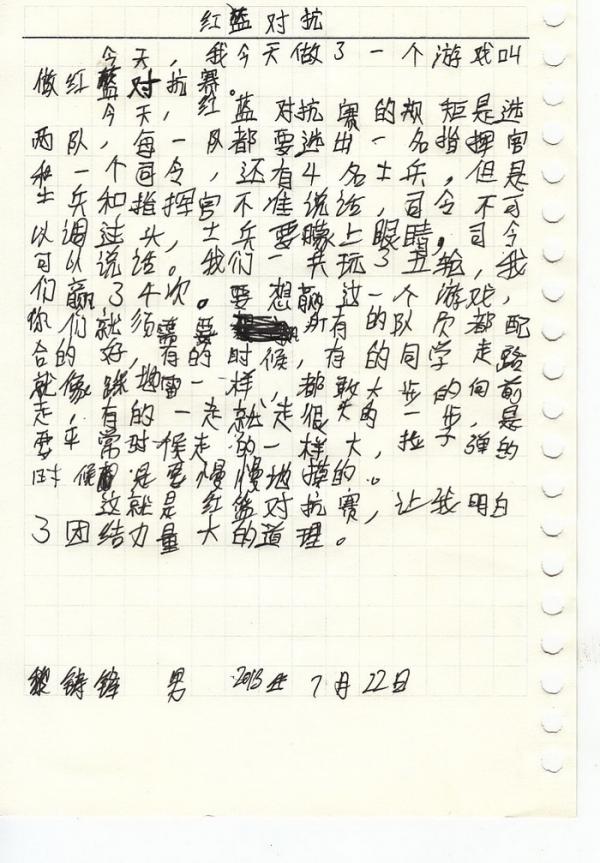 红蓝对抗
今天，我今天做了一个游戏叫
做红蓝对抗赛。
今天，红蓝对抗赛的规矩是选
两队，每一队都要选出一名指挥官
和一个司令，还有4名士兵。但是
士兵和指挥官不准说话，司令不可
以调过头，士兵要朦上眼睛。司令
可以说话。我们一共玩了五轮，我
们赢了4次。要想赢过一个游戏，
你们就须要所有的队员都配
合的好，有的时候，有的同学走路
就像踩地雷一样，都敢大步的向前
走，有的一走就走很大的一步，是
要平常时候走的一样大，捡子弹的
时候是要慢慢地摸的。
这就是红篮对抗赛，让我明白
了团结力量大的道理。
黎铸锋 男 2013年 7月22日